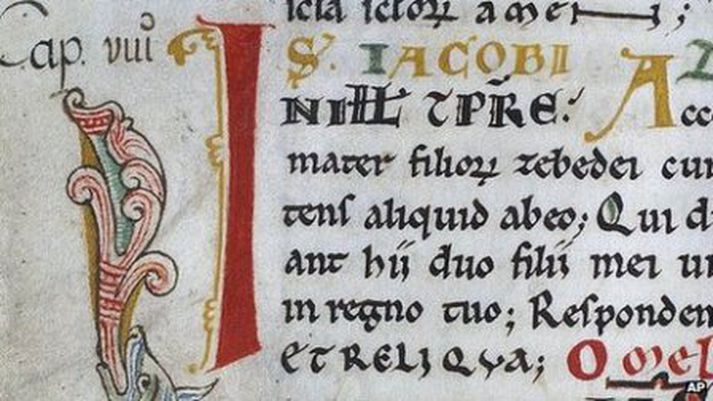 icia ictoꝝ amen;
Cap. viiii
I S. IACOBI
IN ILL' TPR̄E: Acc
mater filioꝝ zebedei cum
tens aliquid abeo; Qui d
ant hii duo filii mei un
in regno tuo; Responden
ET RELIQVA; Omel
AP